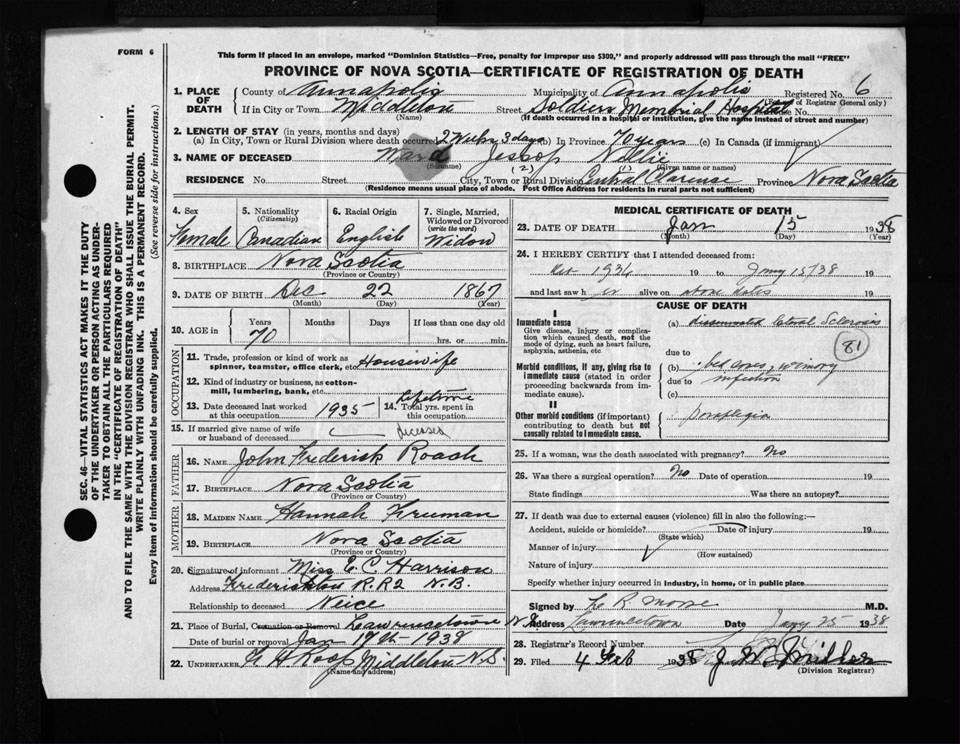 FORM 6
This form if placed in an envelope, marked "Dominion Statistics—Free, penalty for improper use $300," and properly addressed will pass through the mail "FREE"
PROVINCE OF NOVA SCOTIA—CERTIFICATE OF REGISTRATION OF DEATH
SEC. 46—VITAL STATISTICS ACT MAKES IT THE DUTY
OF THE UNDERTAKER OR PERSON ACTING AS UNDER-
TAKER TO OBTAIN ALL THE PARTICULARS REQUIRED
IN THE "CERTIFICATE OF REGISTRATION OF DEATH"
AND TO FILE THE SAME WITH THE DIVISION REGISTRAR WHO SHALL ISSUE THE BURIAL PERMIT.
WRITE PLAINLY WITH UNFADING INK. THIS IS A PERMANENT RECORD.
Every item of information should be carefully supplied. (See reverse side for instructions.)
1. PLACE OF DEATH County of Annapolis Municipality of Annapolis Registered No. 6
(For use of Registrar General only)
If in City or Town Middleton Street Soldiers Memorial Hospital House No.
(Name) (If death occurred in a hospital or institution, give the name instead of street and number)
2. LENGTH OF STAY (in years, months and days)
(a) In City, Town or Rural Division where death occurred 2 Weeks 3 days (b) In Province 70 years (c) In Canada (if immigrant)
3. NAME OF DECEASED Ward Jessop Nellie
(Surname) (2) (1) (Given name or names)
RESIDENCE No. Street City, Town or Rural Division Central Clarence Province Nova Scotia
(Residence means usual place of abode. Post Office Address for residents in rural parts not sufficient)
4. Sex Female
5. Nationality (Citizenship) Canadian
6. Racial Origin English
7. Single, Married, Widowed or Divorced (write the word) Widow
8. BIRTHPLACE Nova Scotia
(Province or Country)
9. DATE OF BIRTH Dec 22 1867
(Month) (Day) (Year)
10. AGE in Years Months Days If less than one day old
70 hrs. or min.
OCCUPATION
11. Trade, profession or kind of work as spinner, teamster, office clerk, etc. Housewife
12. Kind of industry or business, as cotton-mill, lumbering, bank, etc.
13. Date deceased last worked at this occupation 1935 14. Total yrs. spent in this occupation Lifetime
15. If married give name of wife or husband of deceased deceased
FATHER
16. NAME John Frederick Roach
17. BIRTHPLACE Nova Scotia
(Province or Country)
MOTHER
18. MAIDEN NAME Hannah Freeman
19. BIRTHPLACE Nova Scotia
(Province or Country)
20. Signature of informant Miss E. C. Harrison
Address Frederickton R.R.2 N.B.
Relationship to deceased Neice
21. Place of Burial, Cremation or Removal Lawrencetown N.S.
Date of burial or removal Jan 17th 1938
22. UNDERTAKER Roop Middleton N.S.
(Name and address)
MEDICAL CERTIFICATE OF DEATH
23. DATE OF DEATH Jan 15 1938
(Month) (Day) (Year)
24. I HEREBY CERTIFY that I attended deceased from:
1936 19 to Jany 15/38 19
and last saw her alive on above dates 19
CAUSE OF DEATH
I
Immediate cause
Give disease, injury or complication which caused death, not the mode of dying, such as heart failure, asphyxia, asthenia, etc.
(a) disseminated lateral Sclerosis
81
due to
Morbid conditions, if any, giving rise to immediate cause (stated in order proceeding backwards from immediate cause).
(b) bed sores, urinary
due to infection
(c)
II
Other morbid conditions (if important) contributing to death but not causally related to immediate cause.
Paraplegia
25. If a woman, was the death associated with pregnancy? No
26. Was there a surgical operation? No Date of operation 19
State findings Was there an autopsy?
27. If death was due to external causes (violence) fill in also the following:—
Accident, suicide or homicide? Date of injury 19
(State which)
Manner of injury
(How sustained)
Nature of injury
Specify whether injury occurred in industry, in home, or in public place
Signed by L R Morse M.D.
Address Lawrencetown Date Jany 25 1938
28. Registrar's Record Number
29. Filed 4 Feb 1938 J. W. Miller
(Division Registrar)